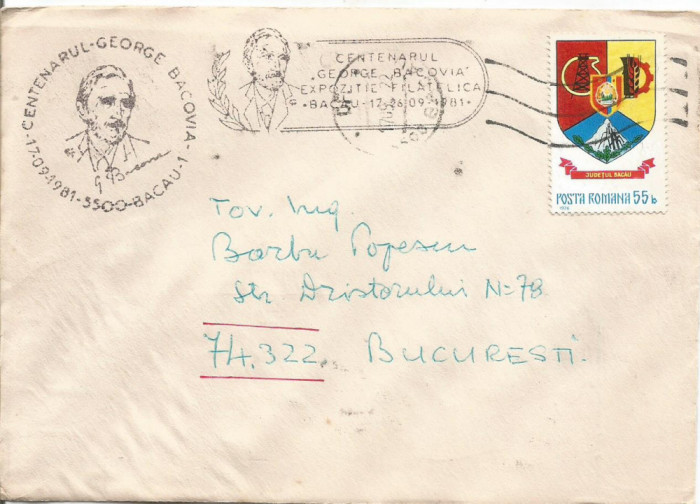 CENTENARUL-GEORGE BACOVIA-
17.09.1981-5500-BACAU-1-
G Bacovia
CENTENARUL
„GEORGE BACOVIA”
EXPOZITIE FILATELICA
•BACAU•17-26.09.1981•
JUDEŢUL BACĂU
POSTA ROMANA 55b
1976
Tov. Ing.
Barbu Popescu
Str Dristorului N=78
74.322 BUCURESTI.